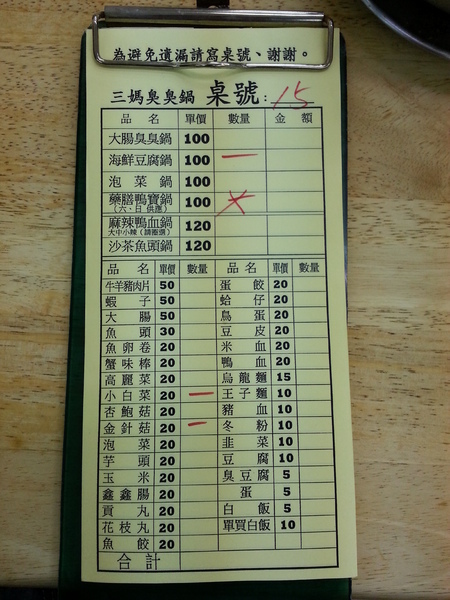 為避免遺漏請寫桌號、謝謝。
三媽臭臭鍋 桌號：15
品名 單價 數量 金額
大腸臭臭鍋 100
海鮮豆腐鍋 100 一
泡菜鍋 100
藥膳鴨寶鍋 100
(六、日 供應)
麻辣鴨血鍋 120
大中小辣(請圈選)
沙茶魚頭鍋 120
品名 單價 數量 品名 單價 數量
牛羊豬肉片 50 蛋餃 20
蝦子 50 蛤仔 20
大腸 50 鳥蛋 20
魚頭 30 豆皮 20
魚卵卷 20 米血 20
蟹味棒 20 鴨血 20
高麗菜 20 烏龍麵 15
小白菜 20 一 王子麵 10
杏鮑菇 20 豬血 10
金針菇 20 一 冬粉 10
泡菜 20 韭菜 10
芋頭 20 豆腐 10
玉米 20 臭豆腐 5
鑫鑫腸 20 蛋 5
貢丸 20 白飯 5
花枝丸 20 單買白飯 10
魚餃 20
合計